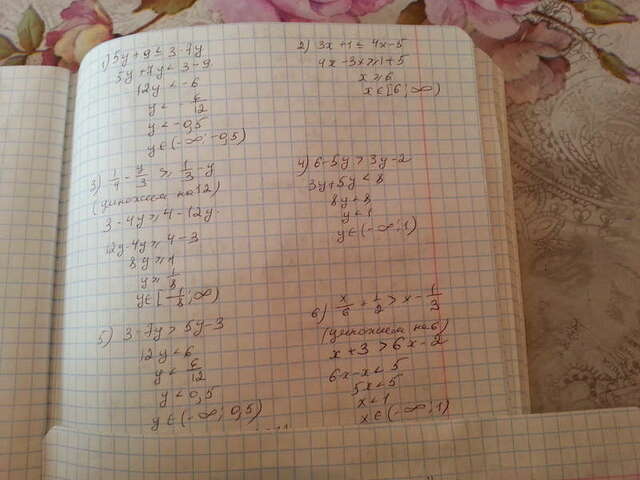 1) 5y + 9 ≤ 3 - 7y
5y + 7y < 3 - 9
12y < -6
y < - 6/12
y < -0,5
y ∈ (-∞; -0,5)
2) 3x + 1 ≤ 4x - 5
4x - 3x ≥ 1 + 5
x ≥ 6
x ∈ [6; ∞)
3) 1/4 - y/3 ≥ 1/3 - y
(умножаем на 12)
3 - 4y ≥ 4 - 12y
12y - 4y ≥ 4 - 3
8y ≥ 1
y ≥ 1/8
y ∈ [1/8; ∞)
4) 6 - 5y > 3y - 2
3y + 5y < 8
8y < 8
y < 1
y ∈ (-∞; 1)
5) 3 - 7y > 5y - 3
12y < 6
y < 6/12
y < 0,5
y ∈ (-∞; 0,5)
6) x/6 + 1/2 > x - 1/3
(умножаем на 6)
x + 3 > 6x - 2
6x - x < 5
5x < 5
x < 1
x ∈ (-∞; 1)